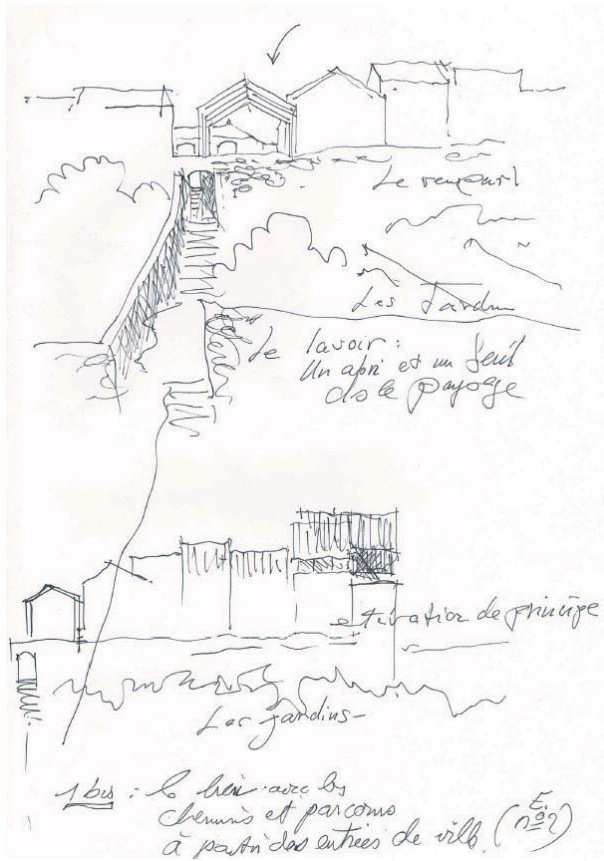 Le rempart
Les Jardins
Le lavoir :
Un abri et un seuil
ds le paysage
élévation de principe
Les jardins -
1 bis : le lien avec les
chemins et parcours
à partir des entrées de ville. (E. nº2)